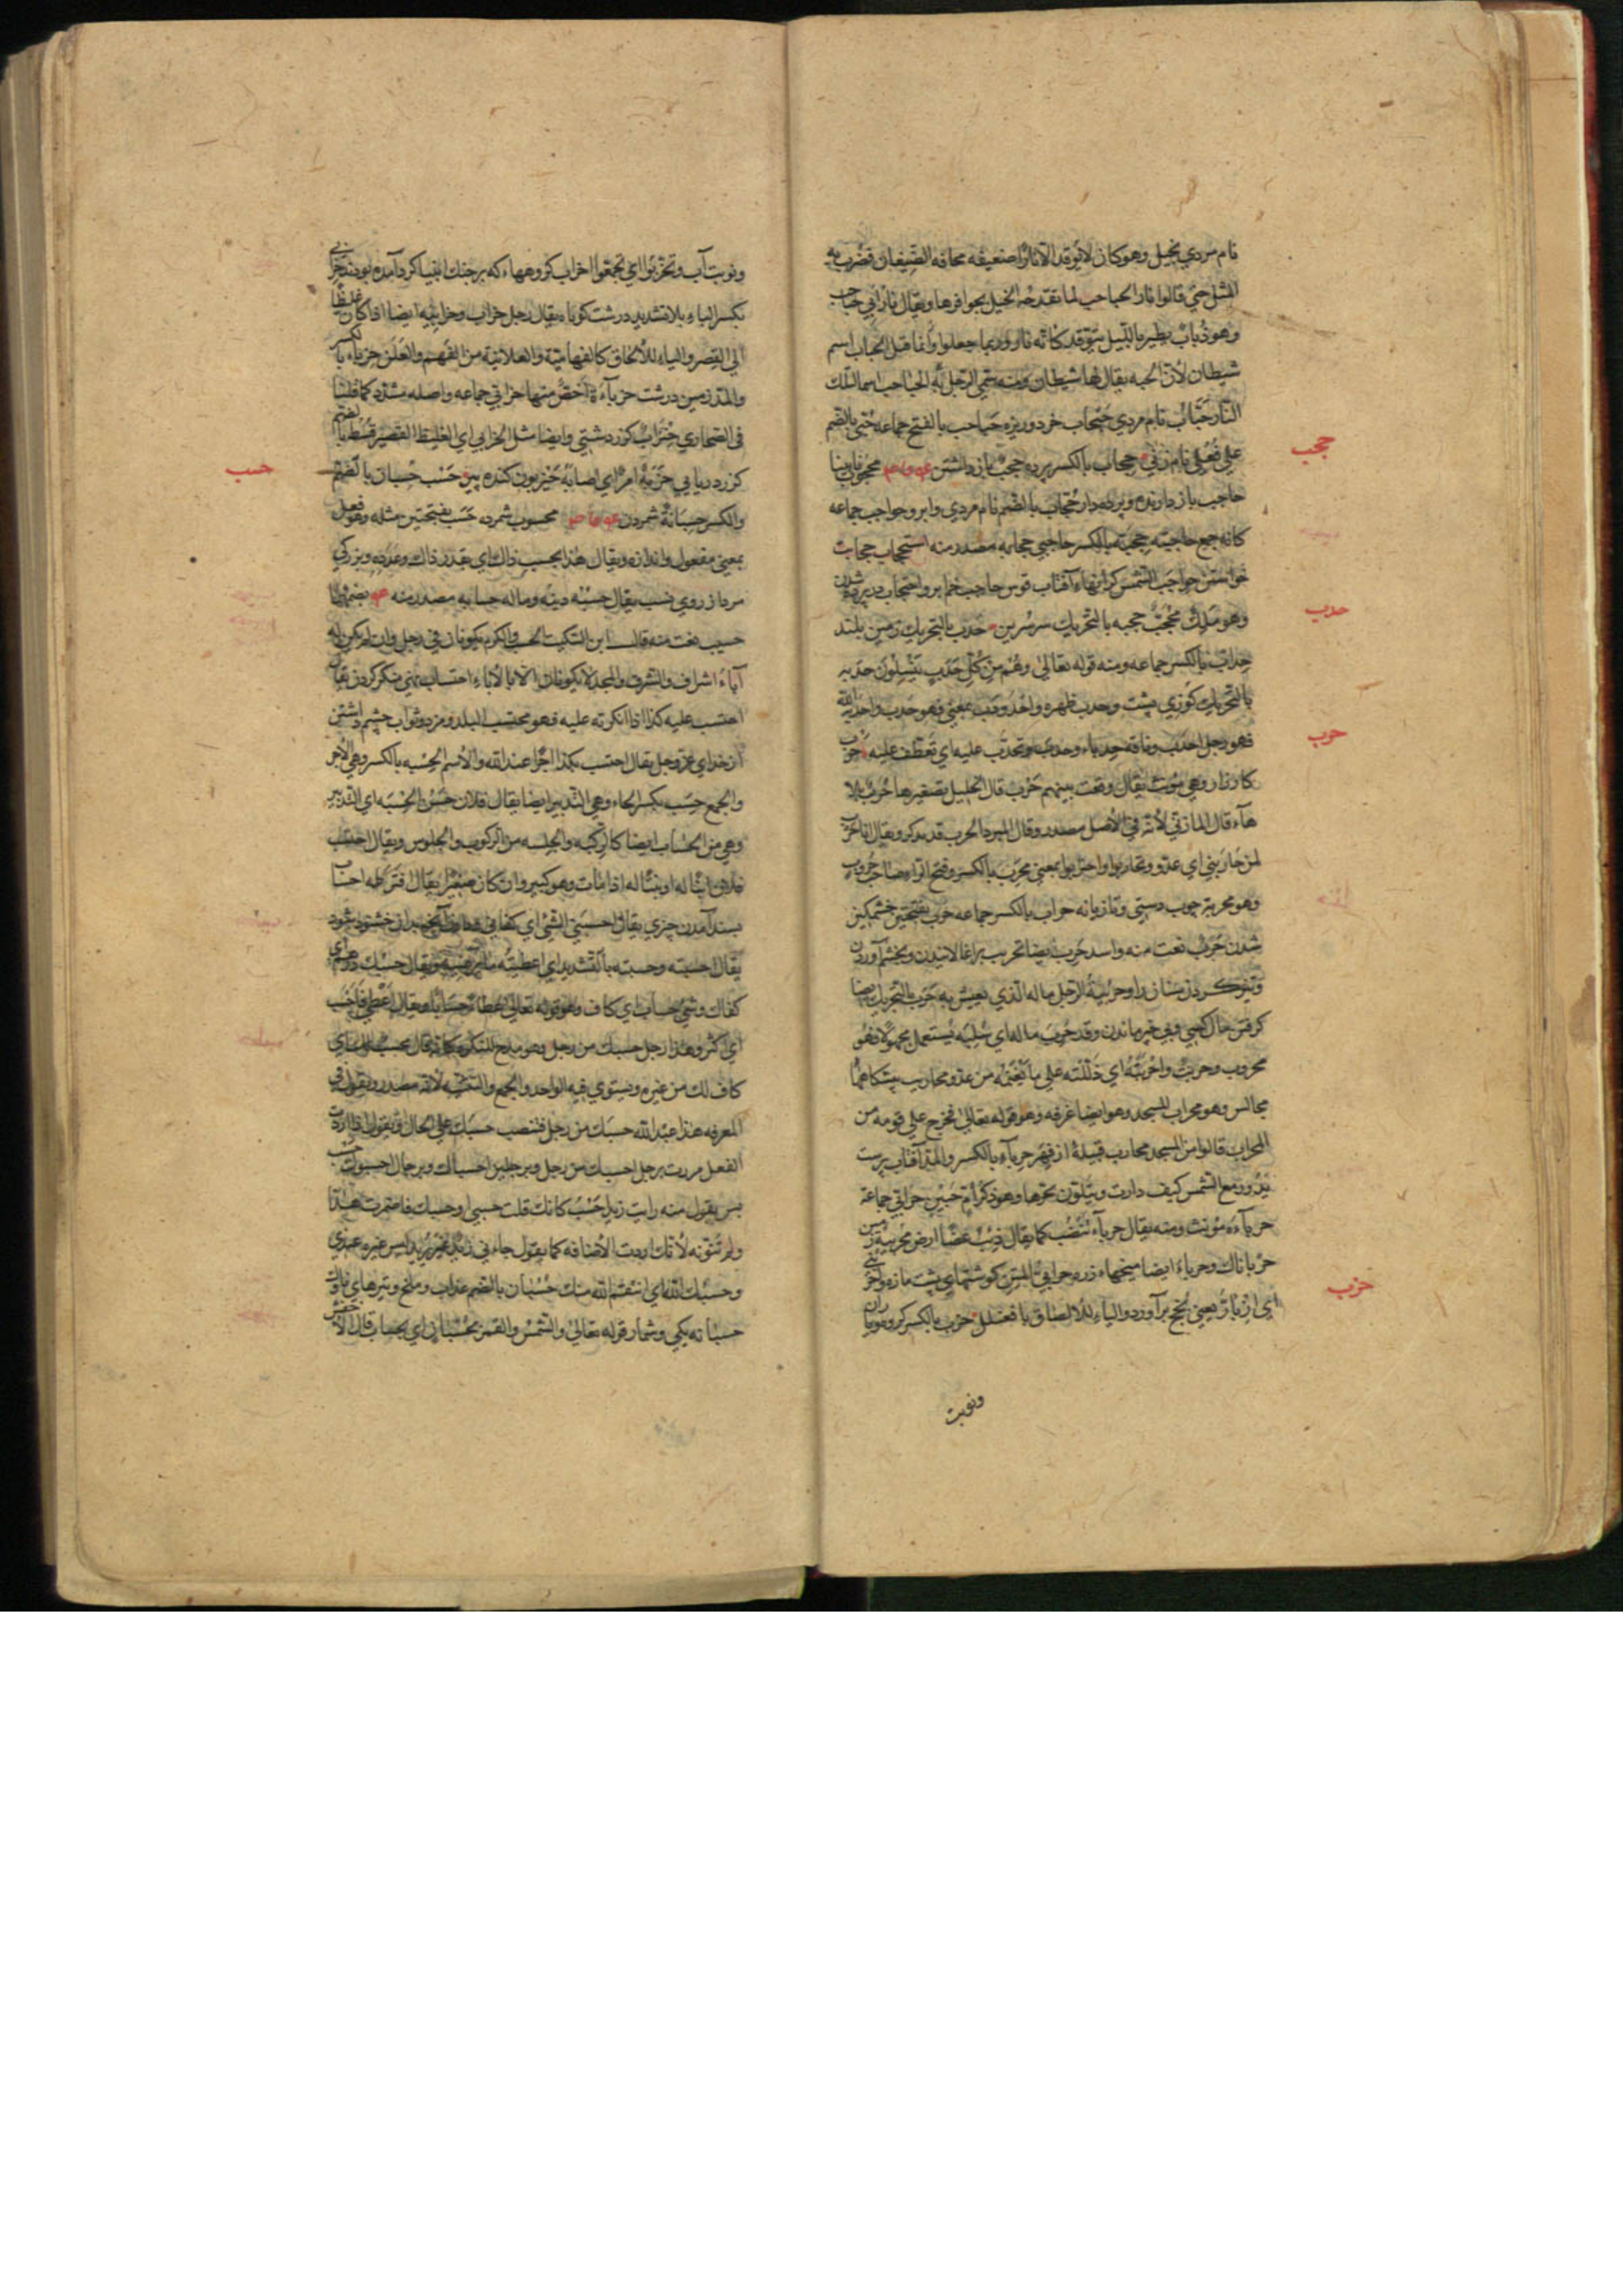 نام مردي بخيل وهو كان لا يوقد الا نارا ضعيفه مخافه الضيفان فضرب به
المثل حتي قالوا نار الحباحب لما تقدحه الخيل بحوافرها ويقال نار ابي حباحب
وهو ذباب يطير بالليل يتوقد كانه نار وربما جعلوا وانما قيل الحباب اسم
شيطان لان الحيه يقال لها شيطان ومنه سمي الرجل
النار حباب نام مردي حبحاب خرد وريزه حباحب بالفتح جماعه حبي بالضم
علي فعلي نام زني حجاب بالكسر پرده حجب باز داشتن محجوب نابينا
حجب
حاجب باز دارنده و پرده دار حجاب بالضم نام مردي وابرو حواجب جماعه
كانه جمع حاجبه حجبه بالكسر حاجبي حجابه مصدر منه استحجاب حجابت
خواستن حواجب الشمس كرانهاء آفتاب قوس حاجب خم ابرو احتجاب در پرده شدن
وهو ملك محجب حجبه بالتحريك سر سرين حدب بالتحريك زمين بلند
حدب
حداب بالكسر جماعه ومنه قوله تعالي وهم من كل حدب ينسلون حدبه
بالتحريك كوزي پشت وحدب ظهره واحدودب بمعني فهو حدب واحدبه الله
فهو رجل احدب وناقه حدباء وحدب وتحدب عليه اي تعطف عليه حرب
حرب
كارزار وهي مونث يقال وقعت بينهم حرب قال الخليل تصغيرها حريب بلا
هاء قال المازني لانه في الاصل مصدر وقال المبرد الحرب قد يذكر ويقال انا حرب
لمن حاربني اي عدو وتحاربوا واحتربوا بمعني محرب بالكسر وفتح الراء صاحب حروب
وهو محربة چوب دستي وتازيانه حراب بالكسر جماعه حرب بفتحتين خشمگين
شدن حرب نعت منه واسد حرب ايضا تحريب بر اغالانيدن وبخشم آوردن
وتيز كردن سنان را وحريبة الرجل ماله الذي يعيش به حرب بالتحريك ايضا
گرفتن مال كسي وبي چيز ماندن وقد حرب ماله اي سلبه يستعمل مجهولا فهو
محروب وحريب واحربته اي دللته علي ما يغنمه من عدو محاريب پيشگاهها
مجالس وهو محراب المسجد وهو ايضا غرفه وهو قوله تعالي فخرج علي قومه من
المحراب قالوا من المسجد محارب قبيلة از فهر حرباء بالكسر والمد آفتاب پرست
يدور مع الشمس كيف دارت ويتلون بحرها وهو ذكر ام حبين حرابي جماعة
حرباءه مونث ومنه يقال حرباء تنضب كما يقال ذئب غضا ارض محربئة زمين
حرباناك وحرباء ايضا ميخهاء زره حرابي المتن گوشتهاي پشت مازه
يعني بر آورد والياء للالصاق بافعنلل حزب بالكسر گروه وياران
حزب
ونوبت
ونوبت آب وتحزبوا اي تجمعوا احزاب گروهها كه بر جنك انبيا گرد آمده بودند حزابي
بكسر الباء بلا تشديد درشت كوتاه يقال رجل حزاب وحزابيه ايضا اذا كان غليظا
الي القصر والياء للالحاق كالفهاميه والعلانيه من الفهم والعلن حزباء بالكسر
والمد زمين درشت حزباءة اخص منها حزابي جماعه واصله مشدد كما قلنا
في الصحاري حنزاب گزر دشتي وايضا مثل الحزابي اي الغليظ القصير قسط بالضم
گزر دريايي حزبه امر اي اصابه حيزبون گنده پير حسب حسبان بالضم
حسب
والكسر حسابة شمردن محسوب شمرده حسب بفتحتين مثله وهو فعل
بمعني مفعول واندازه ويقال هذا بحسب ذاك اي بقدر ذاك وعدده وبزرگي
مرد از روي نسب يقال حسبه دينه وماله حسابه مصدر منه بضمهما
حسيب نعت منه قال ابن السكيت الحسب والكرم يكونان في رجل وان لم يكن له
آباء اشراف والشرف والمجد لا يكونان الا بالآباء احتساب نهي منكر كردن يقال
احتسب عليه كذا اذا انكرته عليه فهو محتسب البلد ومزد وثواب چشم داشتن
از خداي عز وجل يقال احتسب بكذا اجرا عند الله والاسم الحسبه بالكسر وهي الاجر
والجمع حسب بكسر الحاء وهي التدبير ايضا يقال فلان حسن الحسبه اي التدبير
وهي من الحساب ايضا كالركبه والجلسه من الركوب والجلوس ويقال احتسب
فلان ابنا له او بنتا له اذا مات وهو كبير وان كان صغيرا يقال افترطه احساب
بسند آمدن چيزي يقال احسبني الشئ اي كفاني
يقال احسبته وحسبته بالتشديد اي اعطيته ما يرضيه ويقال حسبك درهم اي
كفاك وشئ حساب اي كاف وهو قوله تعالي عطاء حسابا ويقال اعطي فاحسب
اي اكثر وهذا رجل حسبك من رجل وهو مدح للنكره
كاف لك من غيره ويستوي فيه الواحد والجمع والتثنيه لانه مصدر ويقول في
المعرفه هذا عبد الله حسبك من رجل فتنصب حسبك علي الحال ويقول اذا اردت
الفعل مررت برجل احسبك من رجل وبرجلين احسباك وبرجال احسبوك حسب
بس يقول منه رايت زيدا حسب كانك قلت حسبي او حسبك فاضمرت هذا
ولم تنونه لانك اردت الاضافه كما يقول جاءني زيد ليس غير يريد ليس غيره عندي
وحسبك الله اي انتقم الله منك حسبان بالضم عذاب وملخ وتيرهاي ناوك
حسبانه يكي وشمار قوله تعالي والشمس والقمر بحسبان اي بحساب قال الاخفش